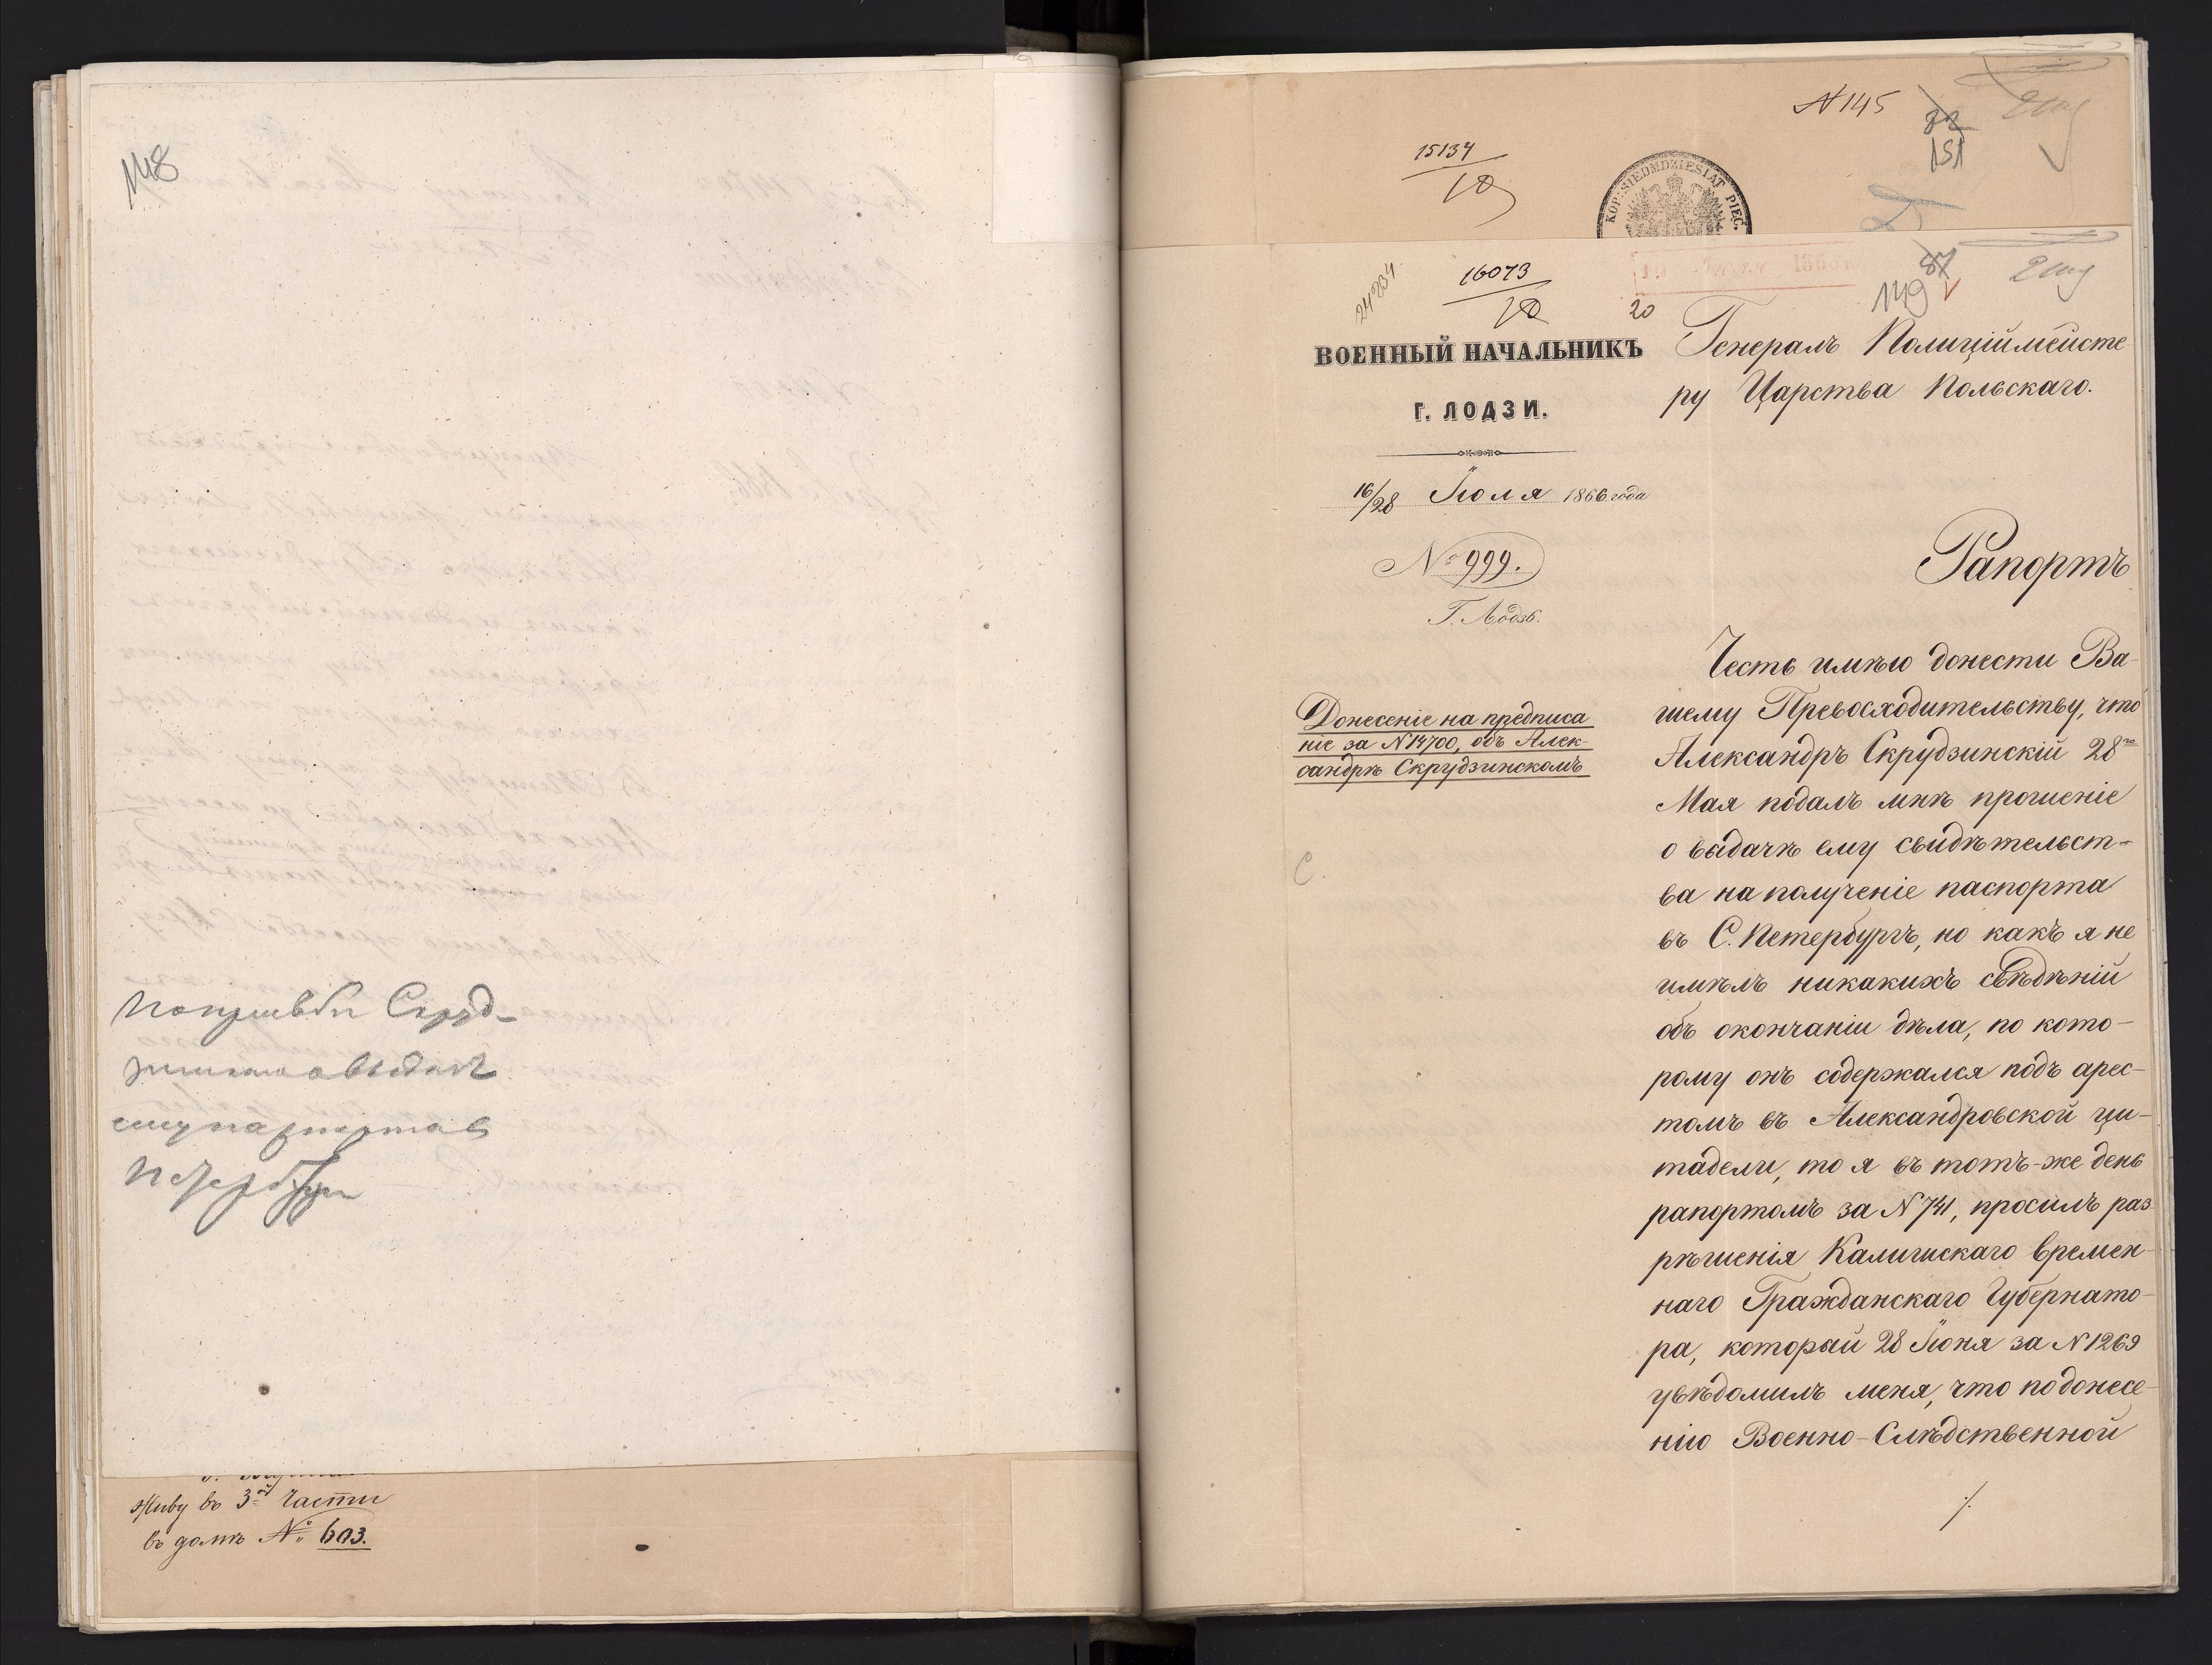 148
По просьбѣ Скруд-
зинскаго о выдачѣ
ему паспорта въ
Петербургъ
Живу въ 3-й Части
въ домѣ № 603.
N 145
151
15134
10
KOP. SIEDMDZIESIĄT PIĘĆ.
24234
16073
10
20
149
87
ВОЕННЫЙ НАЧАЛЬНИКЪ
Г. ЛОДЗИ.
16/28 Іюля 1866 года
№ 999.
Г. Лодзь.
Донесеніе на предписа
ніе за N 14700, объ Алек-
сандрѣ Скрудзинскомъ
С.
Генералъ Полиціймейсте
ру Царства Польскаго.
Рапортъ
Честь имѣю донести Ва-
шему Превосходительству, что
Александръ Скрудзинскій 28го
Мая подалъ мнѣ прошеніе
о выдачѣ ему свидѣтельст-
ва на полученіе паспорта
въ С. Петербургъ, но какъ я не
имѣлъ никакихъ свѣдѣній
объ окончаніи дѣла, по кото-
рому онъ содержался подъ арес-
томъ въ Александровской ци-
тадели, то я въ тотъ-же день
рапортомъ за N 741, просилъ раз
рѣшенія Калишскаго времен-
наго Гражданскаго Губернато-
ра, который 28 Іюня за N 1269
увѣдомилъ меня, что по донесе-
нію Военно-Слѣдственной